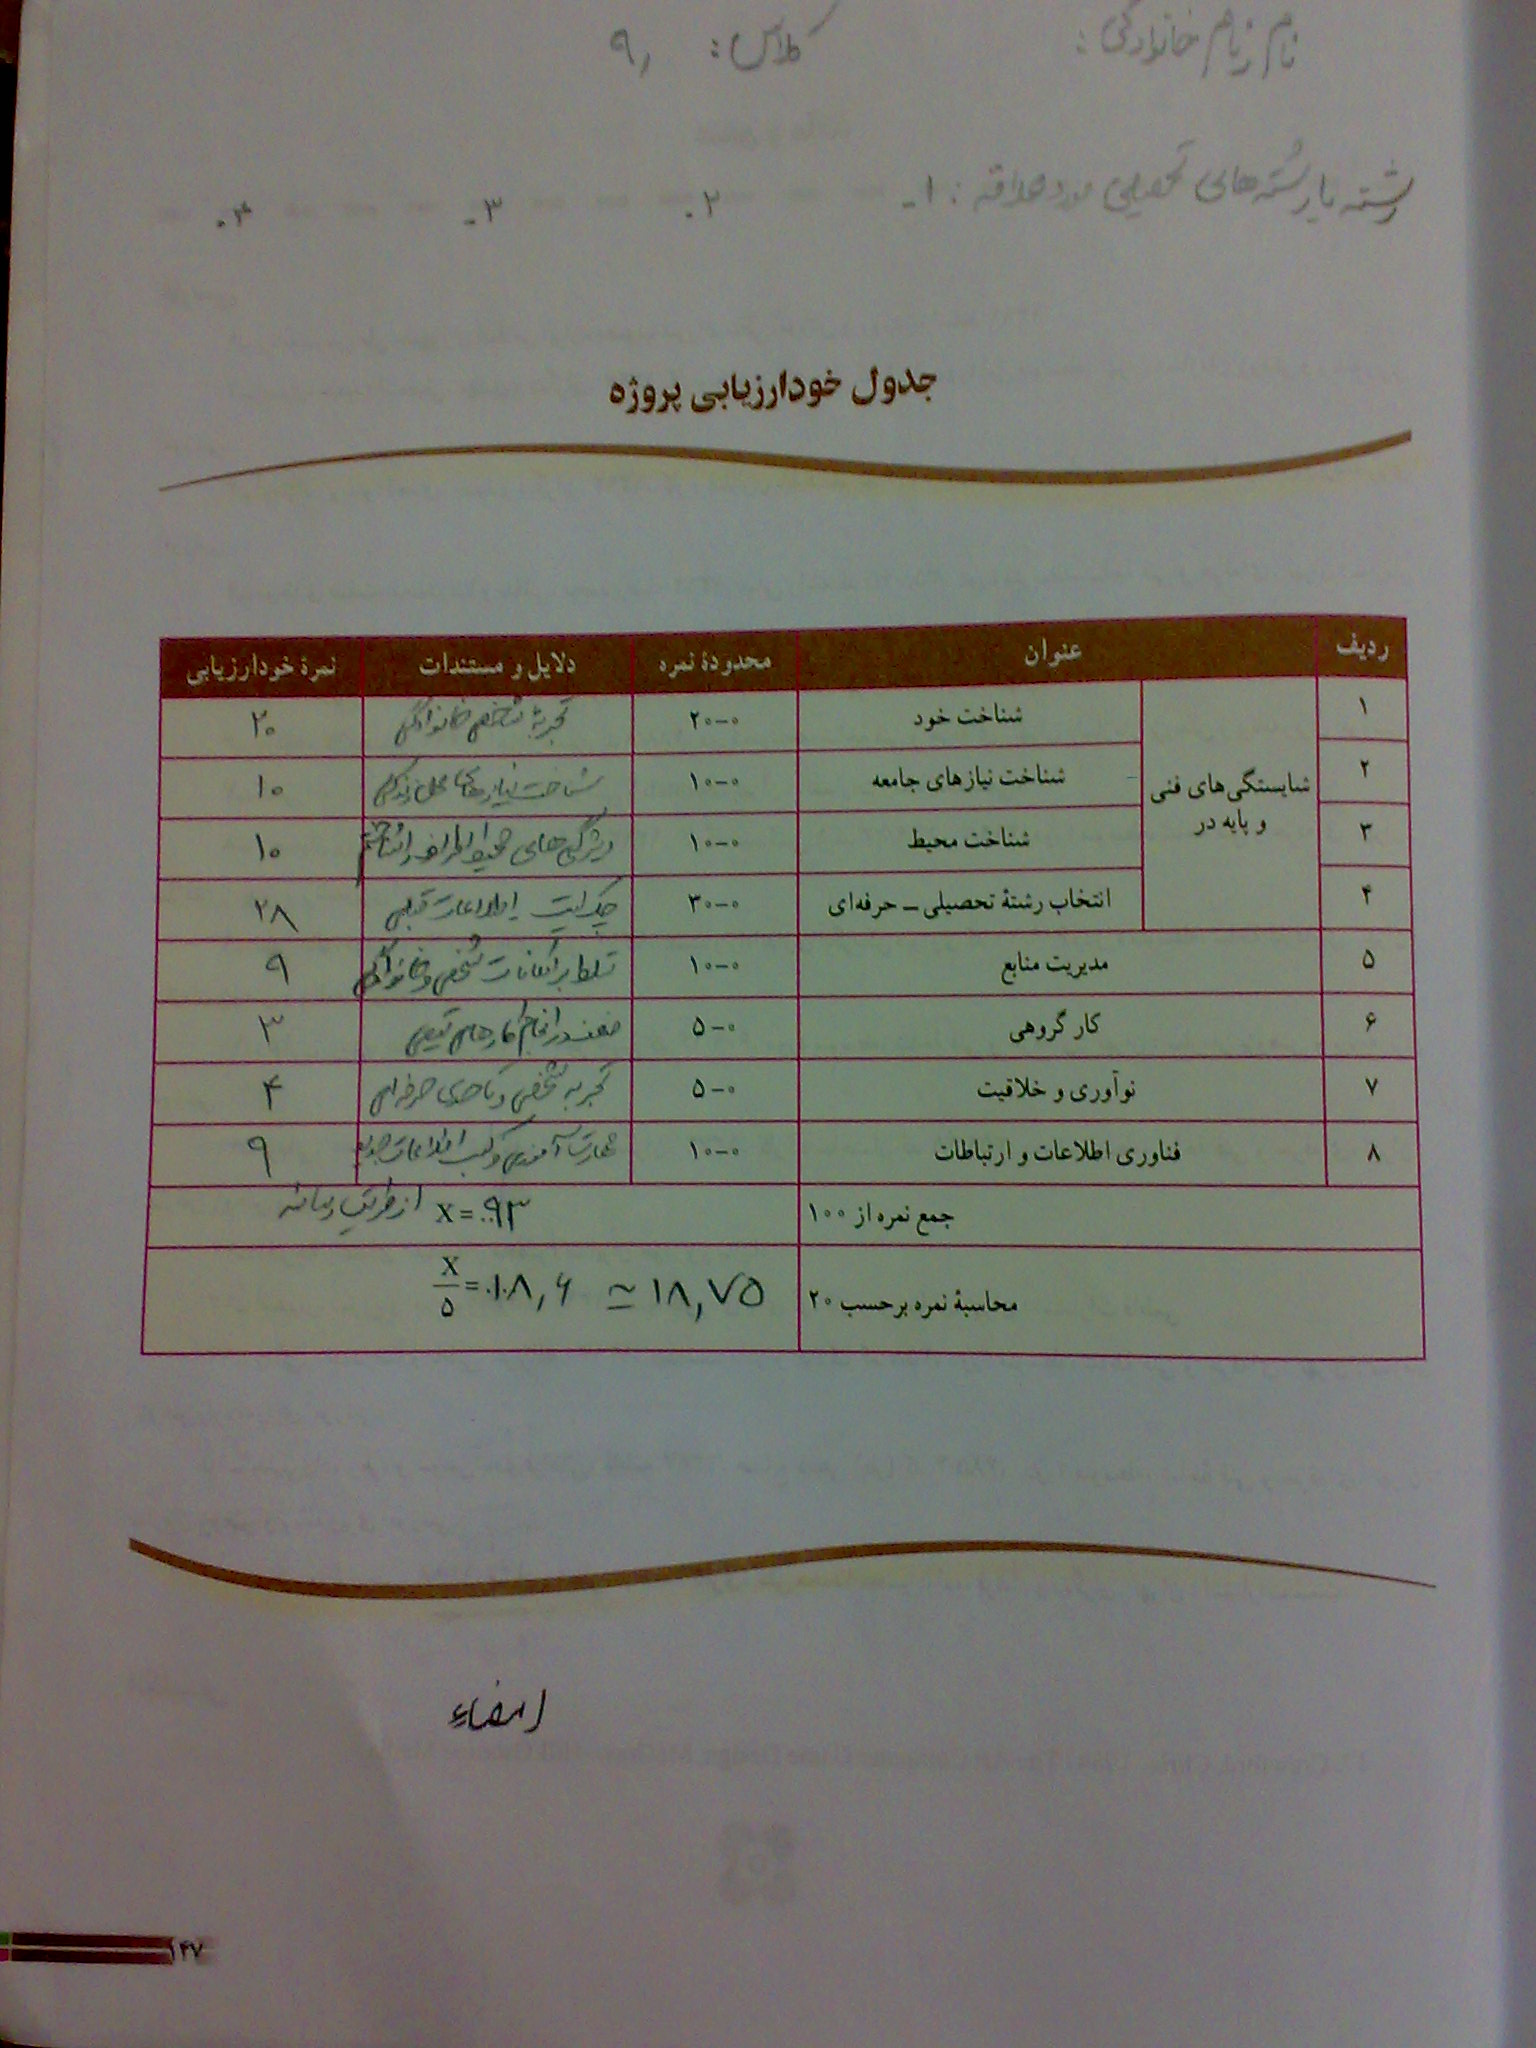 نام و نام خانوادگی : کلاس : ۹,
رشته یا رشته‌های تحصیلی مورد علاقه : ۱- ۲- ۳- ۴-
جدول خودارزیابی پروژه
ردیف عنوان محدودهٔ نمره دلایل و مستندات نمرهٔ خودارزیابی
شایستگی‌های فنی و پایه در
۱ شناخت خود ۰-۲۰ تجربهٔ شخصی خانوادگی ۲۰
۲ شناخت نیازهای جامعه ۰-۱۰ شناخت نیازهای محل زندگی ۱۰
۳ شناخت محیط ۰-۱۰ ویژگی‌های محیط اطراف را شناختم ۱۰
۴ انتخاب رشتهٔ تحصیلی – حرفه‌ای ۰-۳۰ اطلاعات قبلی ۲۸
۵ مدیریت منابع ۰-۱۰ تسلط بر امکانات شخصی و خانوادگی ۹
۶ کار گروهی ۰-۵ ضعف در انجام کارهای تیمی ۳
۷ نوآوری و خلاقیت ۰-۵ تجربه شخصی و تا حدی حرفه‌ای ۴
۸ فناوری اطلاعات و ارتباطات ۰-۱۰ مهارت آموزی و کسب اطلاعات جدید ۹
از طریق رسانه
جمع نمره از ۱۰۰ X = ۹۳
محاسبهٔ نمره برحسب ۲۰ X/۵ = ۱۸,۶ ≃ ۱۸,۷۵
امضاء
۱۴۷